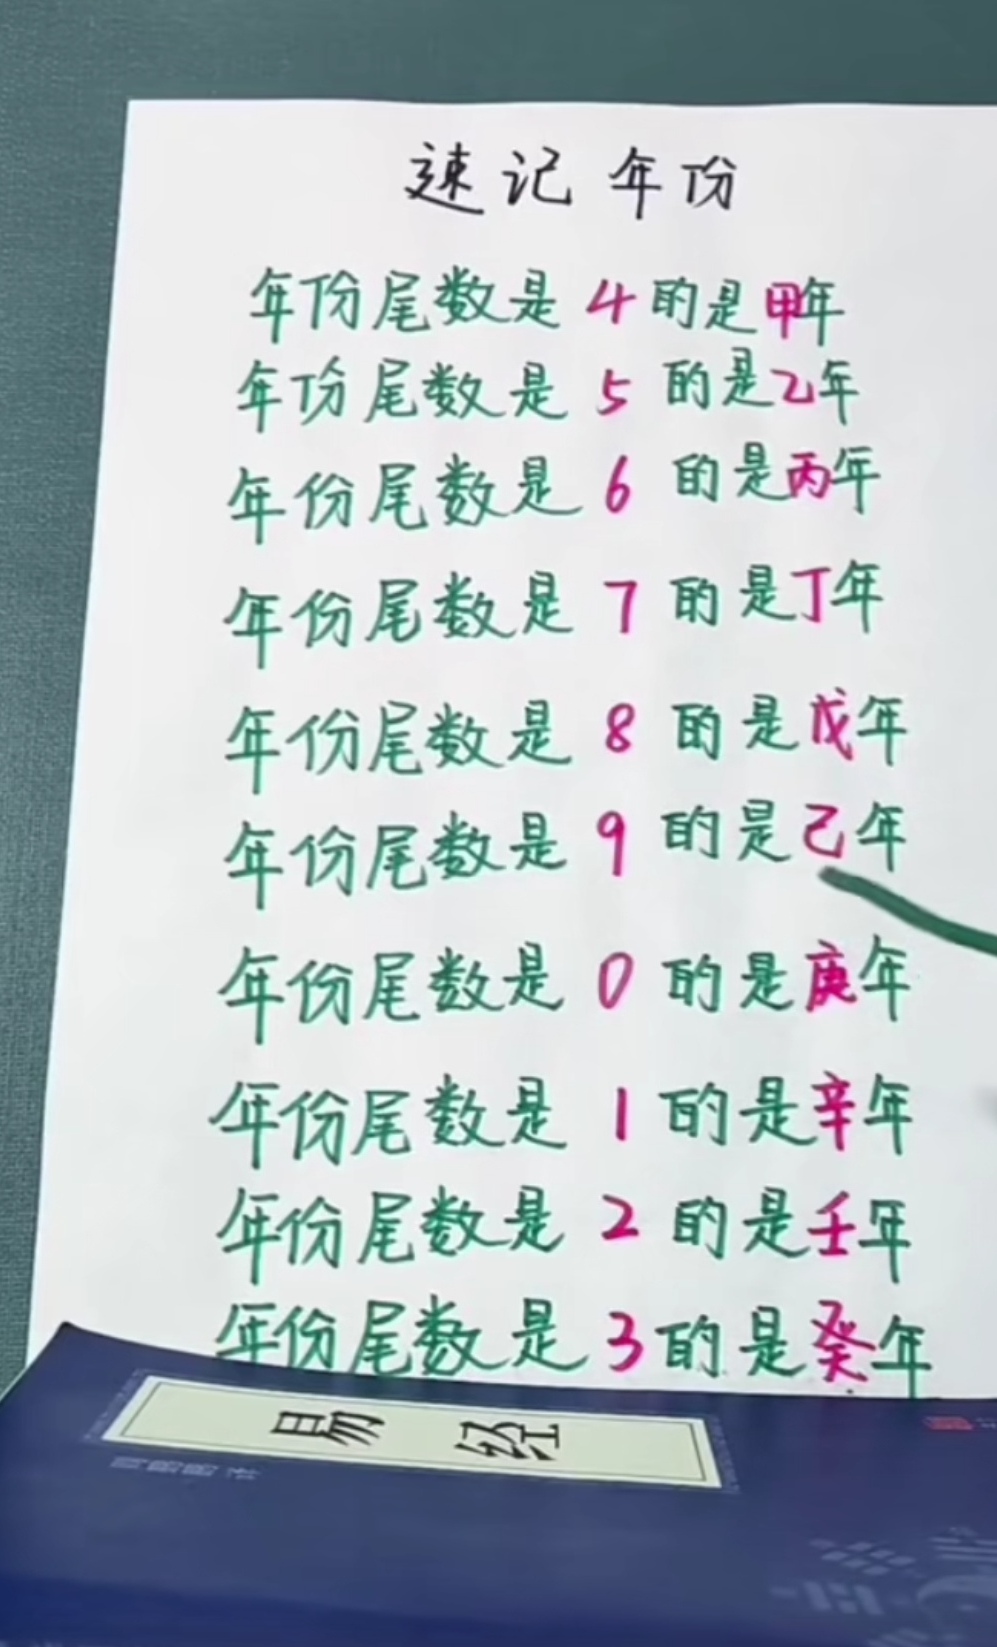 速记年份
年份尾数是4的是甲年
年份尾数是5的是乙年
年份尾数是6的是丙年
年份尾数是7的是丁年
年份尾数是8的是戊年
年份尾数是9的是己年
年份尾数是0的是庚年
年份尾数是1的是辛年
年份尾数是2的是壬年
年份尾数是3的是癸年
易经